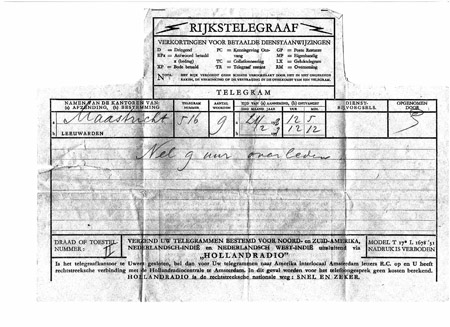 RIJKSTELEGRAAF
VERKORTINGEN VOOR BETAALDE DIENSTAANWIJZINGEN
D = Dringend PC = Kennisgeving Ont- GP = Poste Restante
RPx = Antwoord betaald vang MP = Eigenhandig
x (bedrag) TC = Collationneering LX = Gelukstelegram
XP = Bode betaald TR = Telegraaf restant RM = Overseining
TELEGRAM
NAMEN VAN DE KANTOREN VAN: TELEGRAM NUMMER AANTAL WOORDEN TIJD VAN (a) AANNEMING, (b) ONTVANGST DIENST- BEVORGSELS OPGENOMEN DOOR
(a) AFZENDING, (b) BESTEMMING
a Maastricht 516 9 24/2 12 5
b LEEUWARDEN 12/2 12/12
Nel 9 uur overleden
DRAAD OF TOESTEL NUMMER: II
VERZEND UW TELEGRAMMEN BESTEMD VOOR NOORD- en ZUID-AMERIKA,
NEDERLANDSCH-INDIË en NEDERLANDSCH WEST-INDIË uitsluitend via
„HOLLANDRADIO”
MODEL T 17
NADRUK IS VERBODEN
Is het telegraafkantoor te Uwent gesloten, bel dan voor Uw telegrammen naar Amerika interlocaal Amsterdam letters R.C. op en U heeft
rechtstreeksche verbinding met de Hollandradiocentrale te Amsterdam. In dit geval worden voor het telefoongesprek geen kosten berekend.
HOLLANDRADIO is de rechtstreeksche nationale weg: SNEL EN ZEKER.